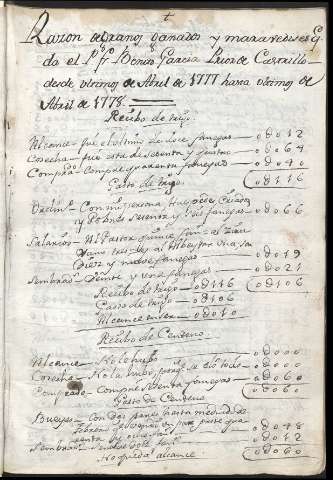 Razon de granos ganados y maravedises q̃
da el Pe. fr. Benito Garcia Prior de Carrillo
desde ultimos de Abril de 1777 hasta ultimos de
Abril de 1778.
Recibo de trigo
Alcance fue el ultimo de doce fanegas — 0 0 12
Cosecha fue esta de sesenta y quatro — 0 0 64
Comprado Compre quarenta fanegas — 0 0 40
0 116
Gasto de trigo
Con mi persona huespedes Criados
y Pobres sesenta y seis fanegas — 0 0 66
Salarios Al Pastor quince
al Albeytar
Diez y nueve fanegas — 0 0 19
Sembrado Veinte y una fanegas — 0 0 21
Recibo de trigo — 0 116 0 106
Gasto de trigo — 0 106
Alcance — 0 0 10
Recibo de Centeno
Alcance No le hubo — 0 0 00
Cosecha No la hubo — 0 0 00
Comprado Compre sesenta fanegas — 0 0 60
0 0 60
Gasto de Centeno
Bueyes Con dos pares hasta mediado de
Febrero
0 0 48
Sembrado — 0 0 12
No queda alcance 0 0 60